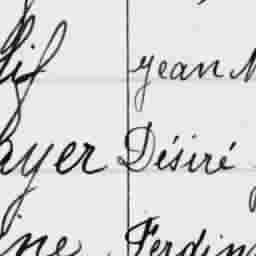 Jean
ayer Désiré
ine Ferdin